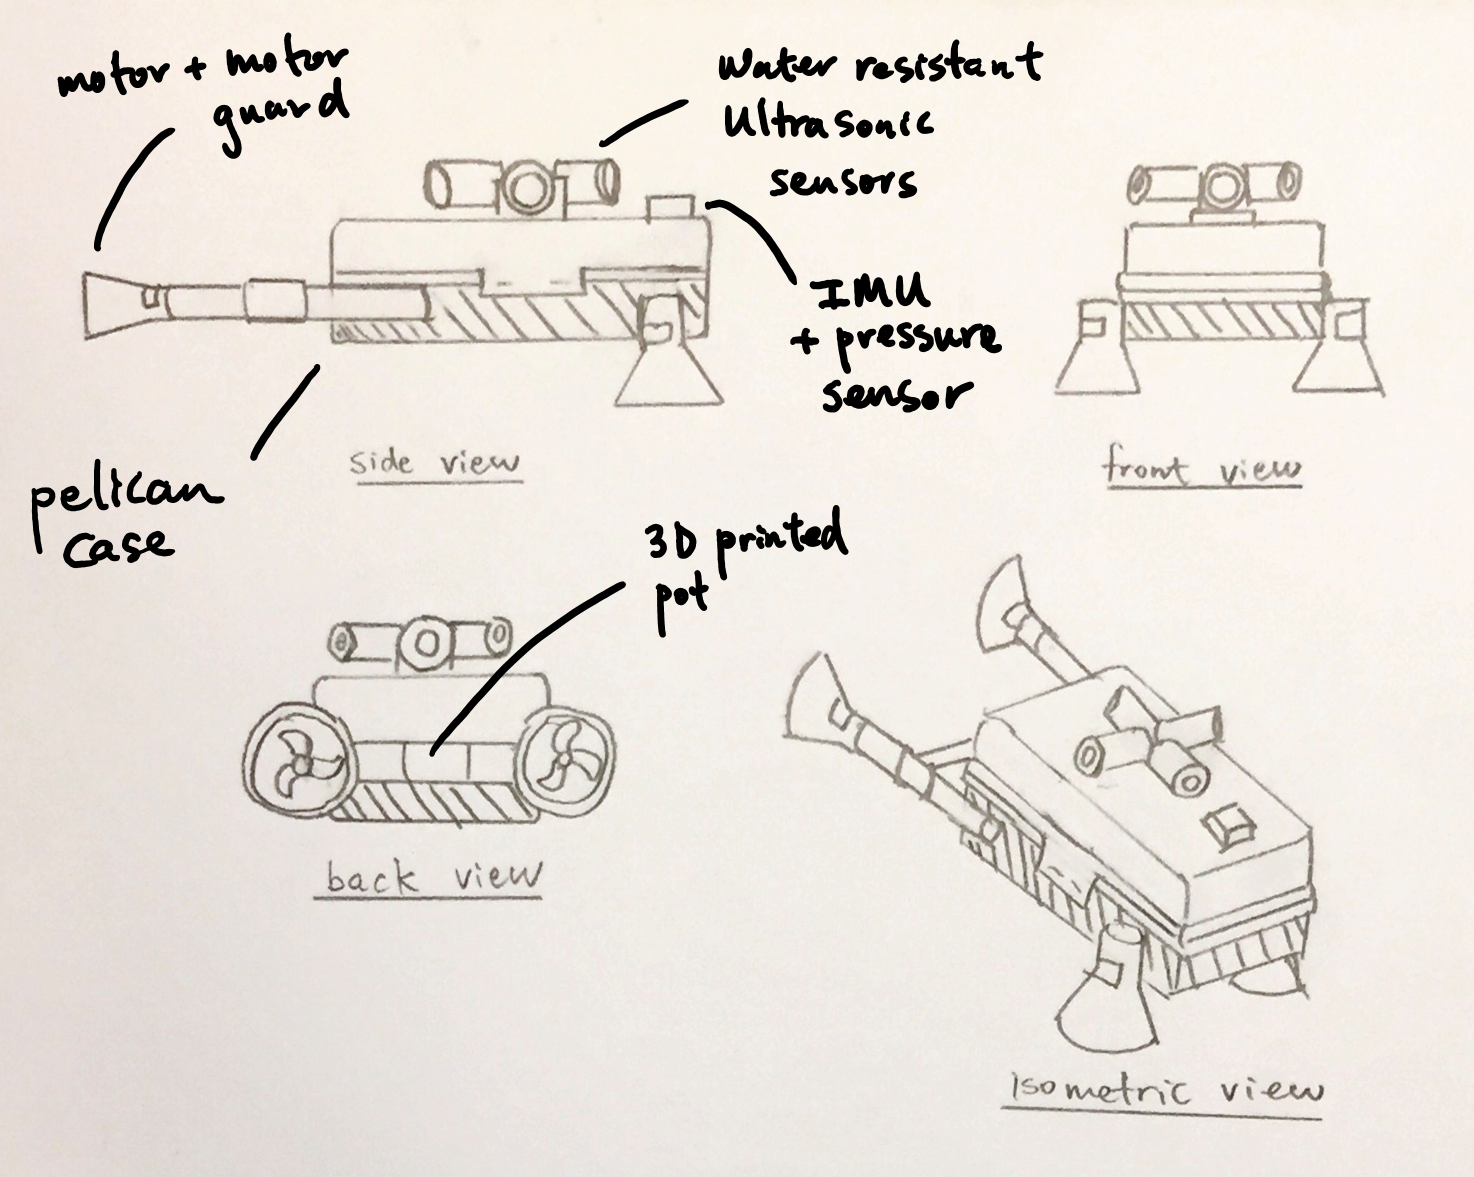 motor + motor
guard
Water resistant
Ultrasonic
sensors
IMU
+ pressure
sensor
side view
front view
pelican
case
3D printed
pot
back view
Isometric view